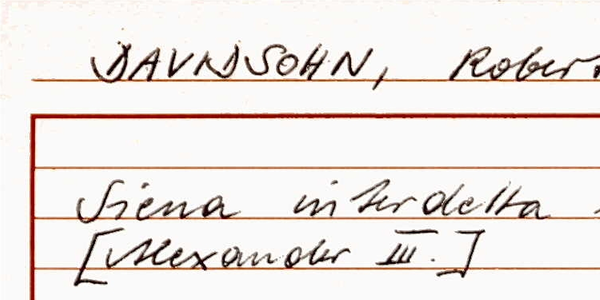 DAVIDSOHN, Robert
Siena interdetta
[Alexander III.]